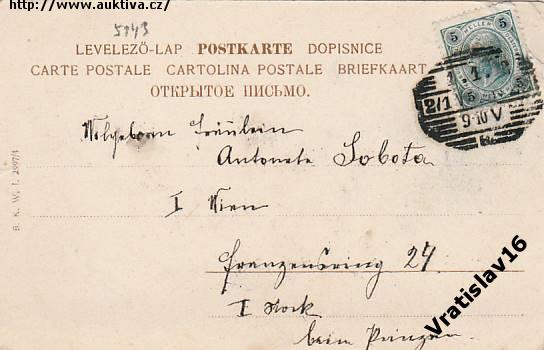 http://www.auktiva.cz/
5143
LEVELEZÖ-LAP POSTKARTE DOPISNICE
CARTE POSTALE CARTOLINA POSTALE BRIEFKAART
ОТКРЫТОЕ ПИСЬМО.
5 HELLER 5
5
2/1
9-10V
Wolgeboren Fräulein
Antonete Sobota
I Wien
Franzensring 27
I Stock
beim Prinzen
B. K. W. I. 2097/1
Vratislav16